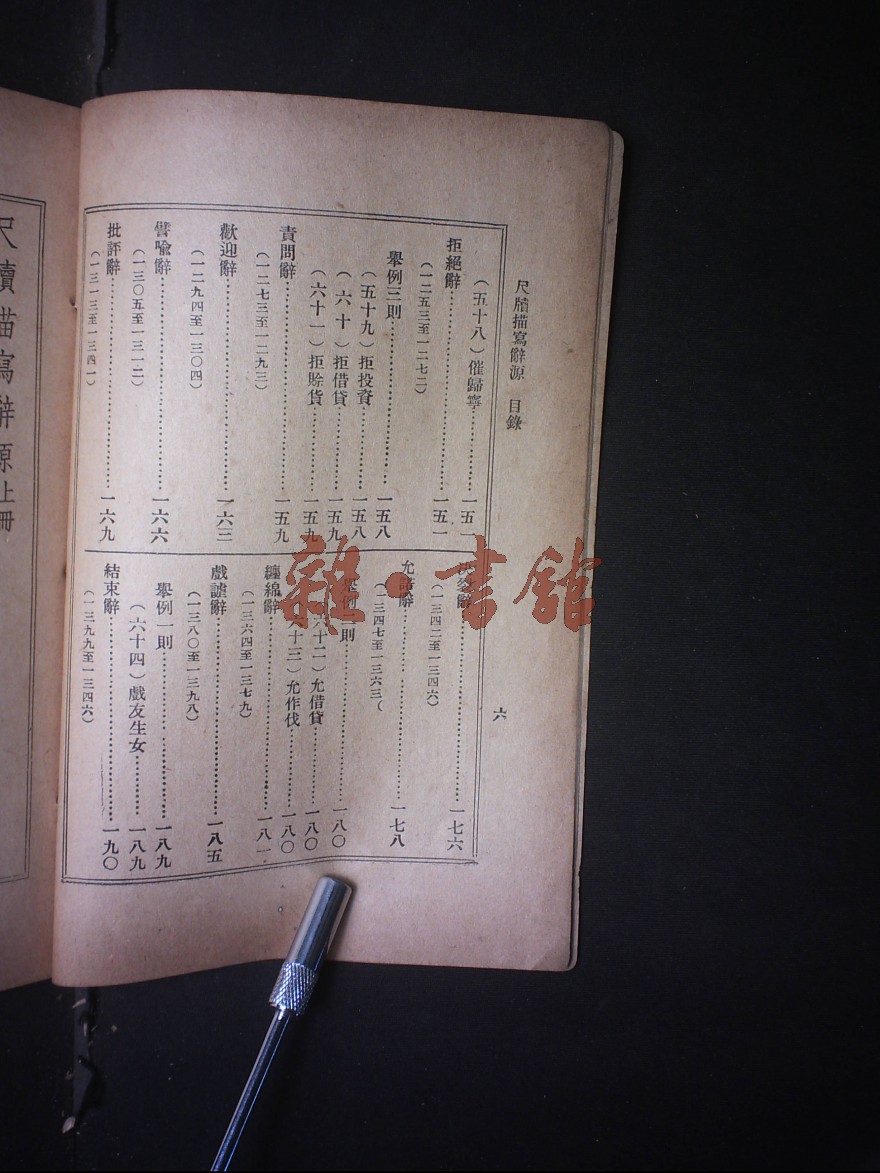 尺牘描寫辭源　目錄
六
（五十八）催歸寧…………一五一
拒絕辭…………一五一
（一二五三至一二七二）
舉例三則…………一五八
（五十九）拒投資…………一五八
（六十）拒借貸…………一五九
（六十一）拒賒貨…………一五九
責問辭…………一五九
（一二七三至一二九三）
歡迎辭…………一六三
（一二九四至一三〇四）
譬喻辭…………一六六
（一三〇五至一三一二）
批評辭…………一六九
（一三一三至一三四一）
辭…………一七六
（一三四二至一三四六）
允諾辭…………一七八
（一三四七至一三六三（
例二則…………一八〇
六十二）允借貸…………一八〇
六十三）允作伐…………一八〇
纏綿辭…………一八一
（一三六四至一三七九）
戲謔辭…………一八五
（一三八〇至一三九八）
舉例一則…………一八九
（六十四）戲友生女…………一八九
結束辭…………一九〇
（一三九九至一三四六）
尺牘描寫辭源上冊
雜·書館